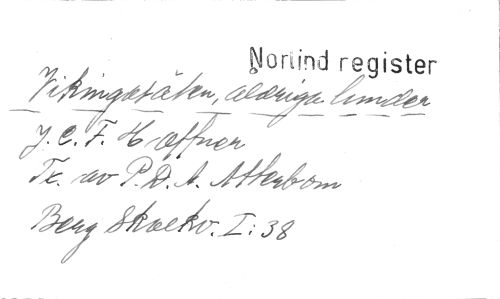 Norlind register
Vikingasäten, åldriga lunder
J. C. F. Hæffner
Tx. av P. D. A. Atterbom
Berg Skolkv. I: 38